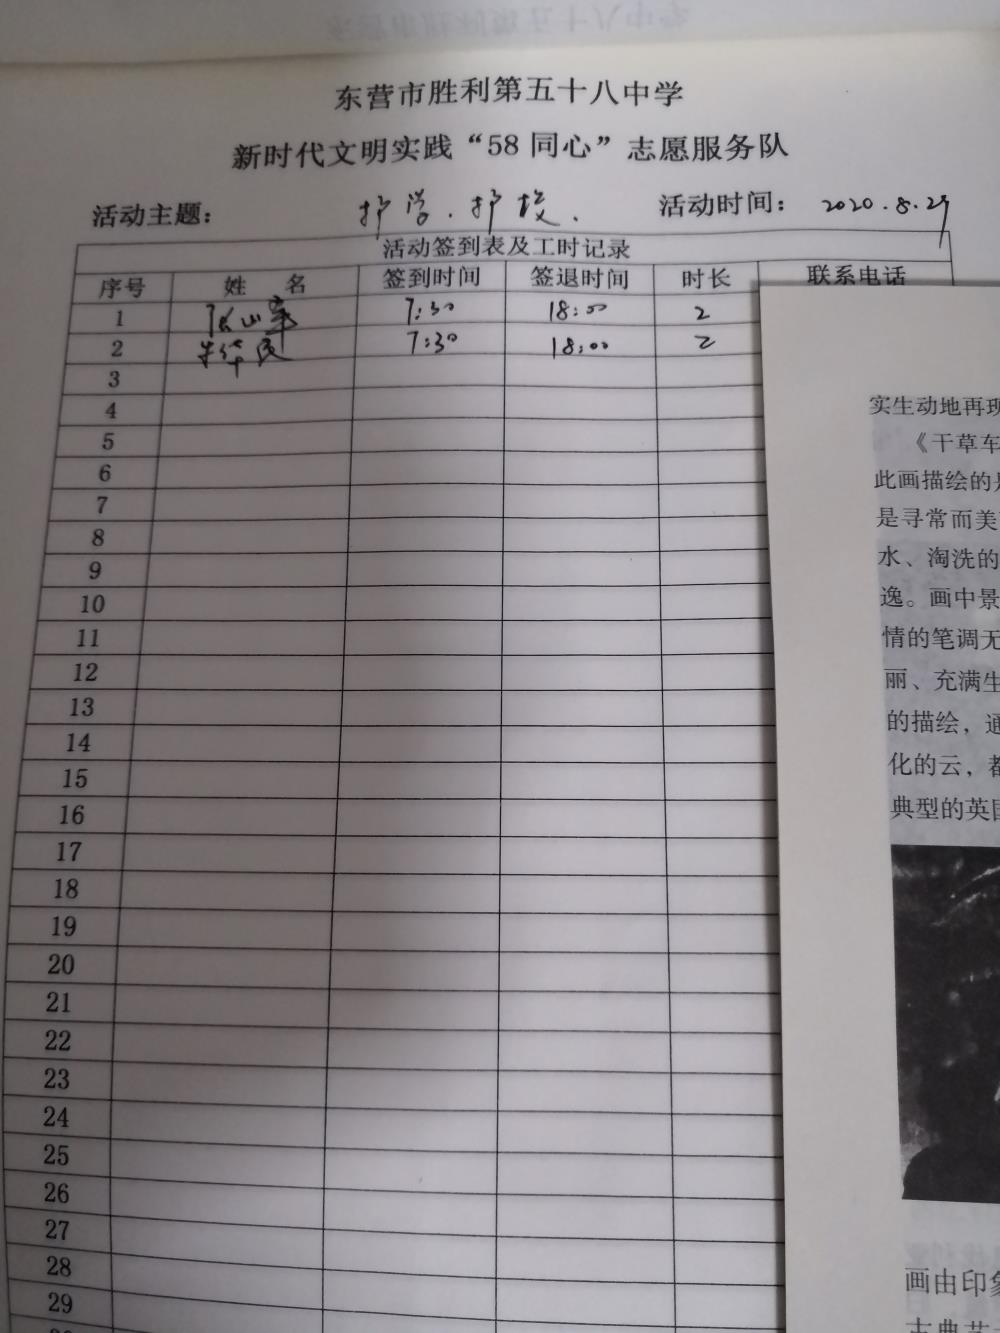 东营市胜利第五十八中学
新时代文明实践“58 同心”志愿服务队
活动主题： 护学．护校． 活动时间： 2020.8.29
活动签到表及工时记录
序号 姓 名 签到时间 签退时间 时长 联系电话
1 张山军 7:30 18:00 2
2 牛华民 7:30 18:00 2
3
4
5
6
7
8
9
10
11
12
13
14
15
16
17
18
19
20
21
22
23
24
25
26
27
28
29
实生动地再现
《干草车
此画描绘的是
是寻常而美
水、淘洗的
逸。画中景
情的笔调无
丽、充满生
的描绘，通
化的云，都
典型的英国
画由印象
古典艺